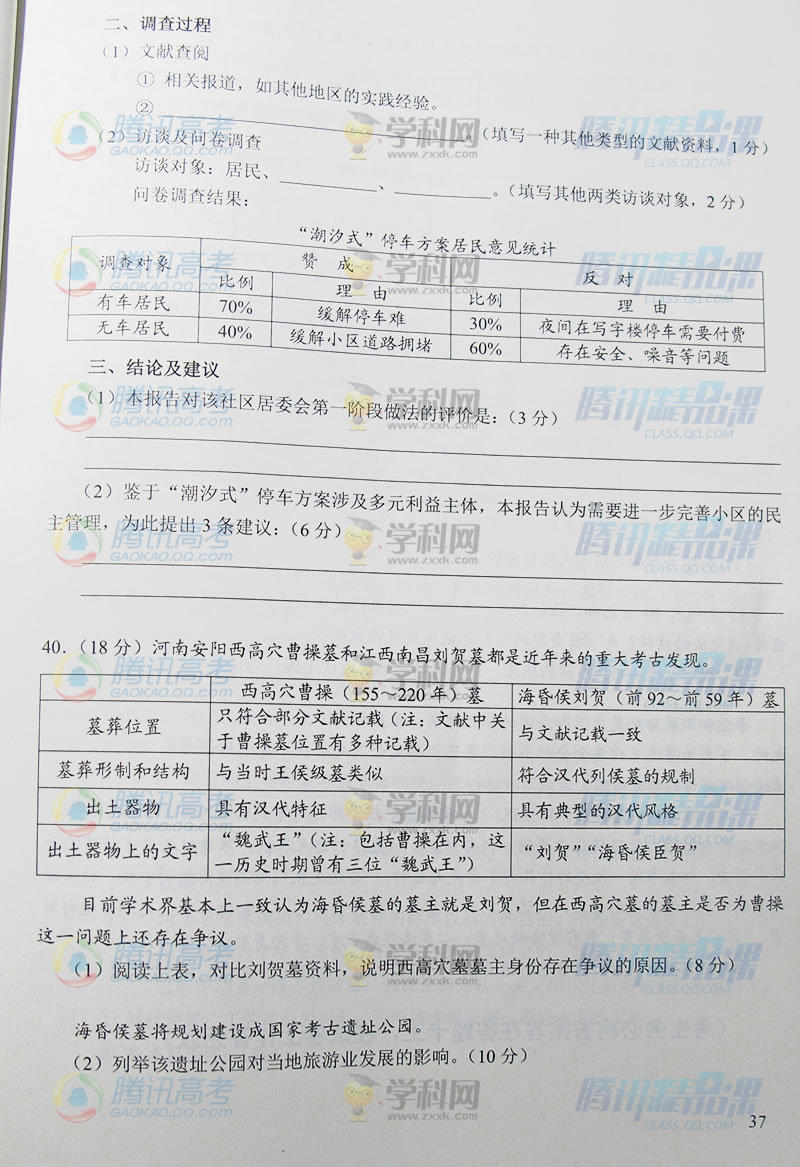 二、调查过程
（1）文献查阅
① 相关报道，如其他地区的实践经验。
②____________________。（填写一种其他类型的文献资料，1 分）
（2）访谈及问卷调查
访谈对象：居民、__________、__________。（填写其他两类访谈对象，2 分）
问卷调查结果：
“潮汐式”停车方案居民意见统计
调查对象 赞 成 反 对
比例 理 由 比例 理 由
有车居民 70% 缓解停车难 30% 夜间在写字楼停车需要付费
无车居民 40% 缓解小区道路拥堵 60% 存在安全、噪音等问题
三、结论及建议
（1）本报告对该社区居委会第一阶段做法的评价是：（3 分）
（2）鉴于“潮汐式”停车方案涉及多元利益主体，本报告认为需要进一步完善小区的民
主管理，为此提出 3 条建议：（6 分）
40．（18 分）河南安阳西高穴曹操墓和江西南昌刘贺墓都是近年来的重大考古发现。
西高穴曹操（155～220 年）墓 海昏侯刘贺（前 92～前 59 年）墓
墓葬位置 只符合部分文献记载（注：文献中关
于曹操墓位置有多种记载） 与文献记载一致
墓葬形制和结构 与当时王侯级墓类似 符合汉代列侯墓的规制
出土器物 具有汉代特征 具有典型的汉代风格
出土器物上的文字 “魏武王”（注：包括曹操在内，这
一历史时期曾有三位“魏武王”） “刘贺”“海昏侯臣贺”
目前学术界基本上一致认为海昏侯墓的墓主就是刘贺，但在西高穴墓的墓主是否为曹操
这一问题上还存在争议。
（1）阅读上表，对比刘贺墓资料，说明西高穴墓墓主身份存在争议的原因。（8 分）
海昏侯墓将规划建设成国家考古遗址公园。
（2）列举该遗址公园对当地旅游业发展的影响。（10 分）
37
腾讯高考
GAOKAO.QQ.COM
学科网
www.zxxk.com
腾讯精品课
CLASS.QQ.COM